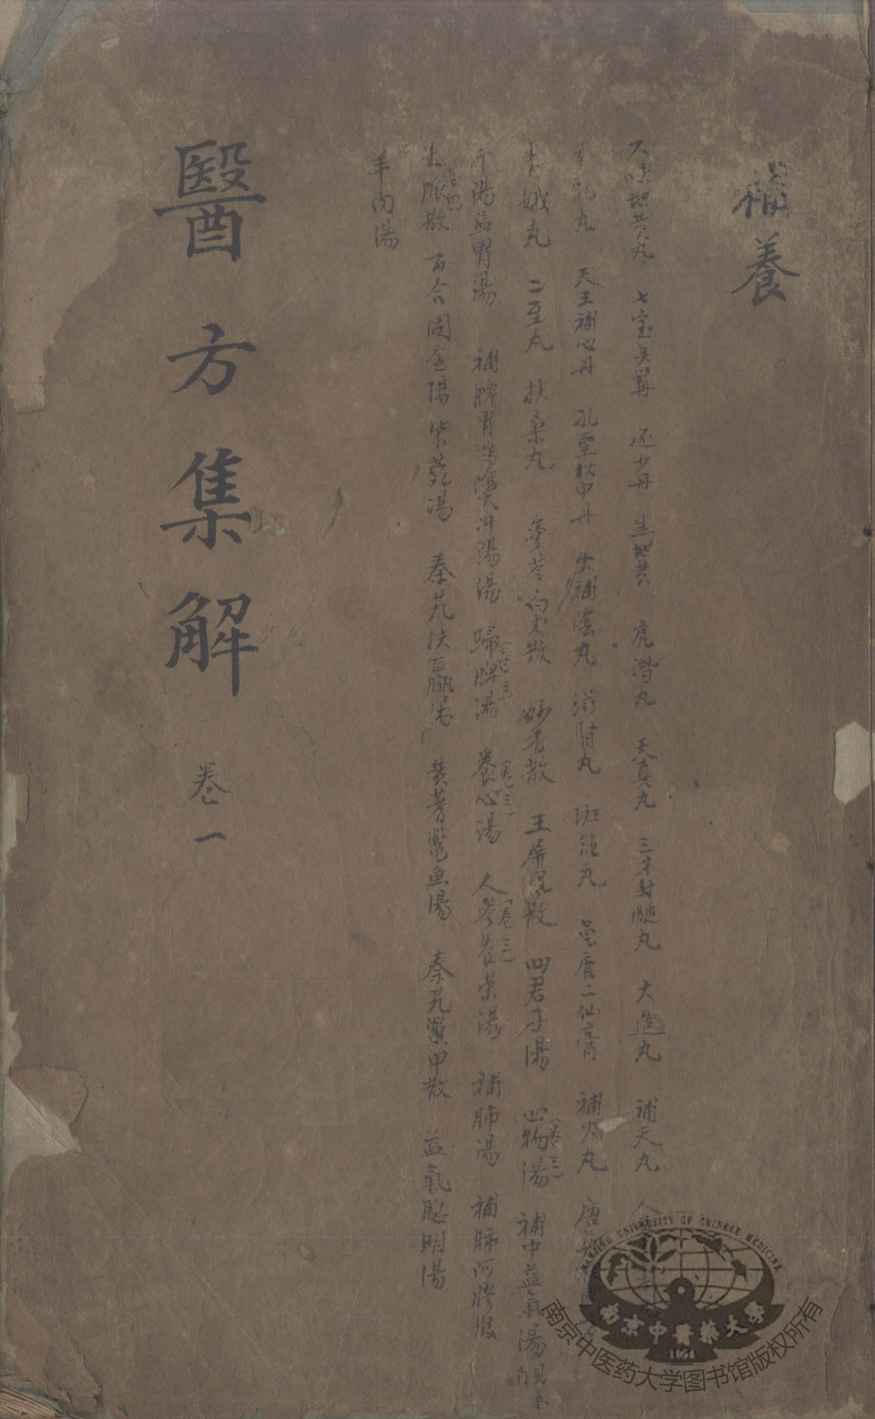 補養
六味地黃丸 七寶美髯 還少丹 虎潛丸 天真丸 三才封髓丸 大造丸 補天丸
天王補心丹 孔聖枕中丹 大補陰丸 滋腎丸 斑龍丸 龜鹿二仙膏 補火丸 唐
青娥丸 二至丸 扶桑丸 參苓白朮散 妙香散 玉屏風散 四君子湯 四物湯 補中益氣湯
升陽益胃湯 補脾胃瀉陰火升陽湯 歸脾湯 養心湯 人參養榮湯 補肺湯 補肺阿膠散
生脈散 百合固金湯 紫菀湯 秦艽扶羸湯 黃芪鱉甲散 秦艽鱉甲散 益氣聰明湯
羊肉湯
醫方集解 卷一
NANJING UNIVERSITY OF CHINESE MEDICINE
南京中醫藥大學
1954
南京中医药大学图书馆版权所有